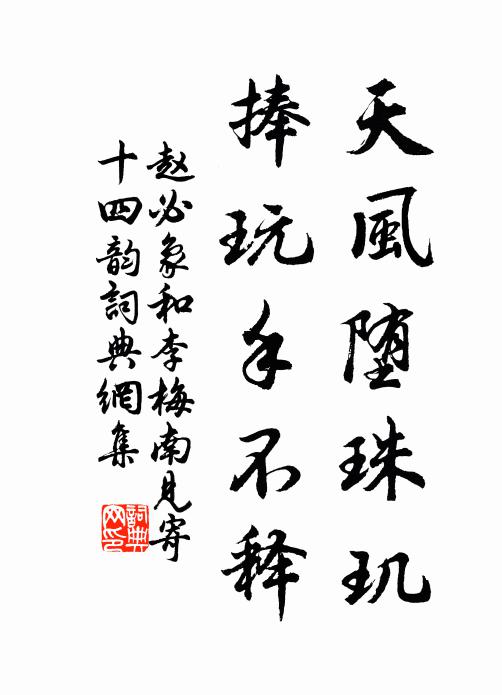 天風堕珠玑
捧玩手不释
赵必象和李梅南見寄
十四韵詞典網集
詞典网印